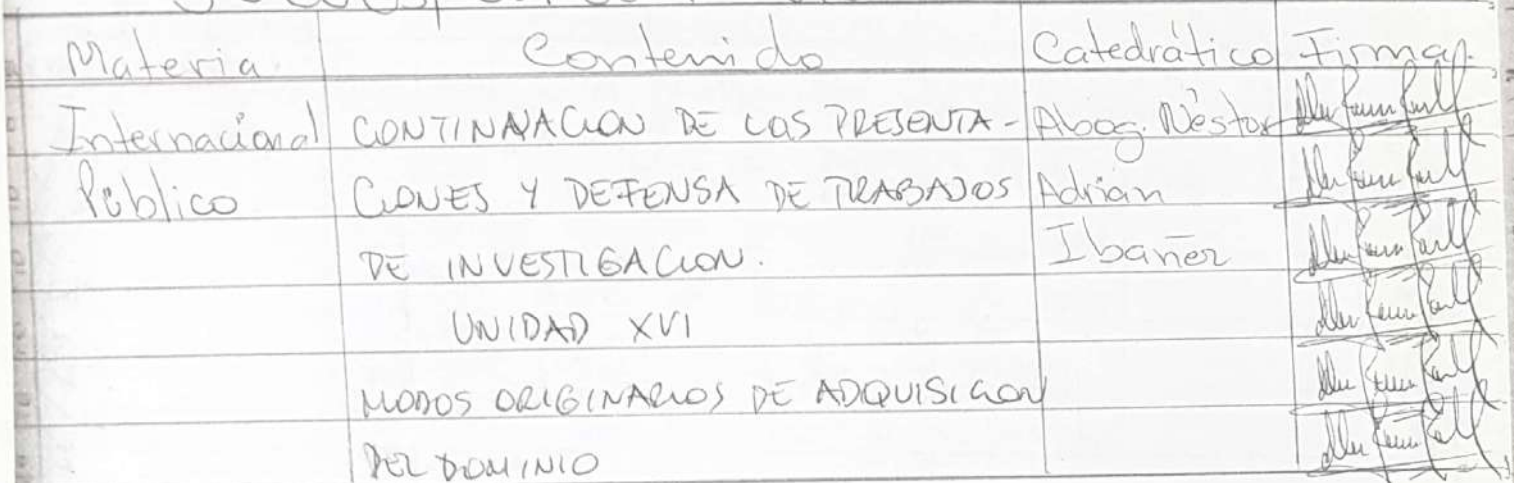 Materia Contenido Catedrático Firma
Internacional CONTINUACION DE LOS PRESENTA- Abog. Néstor
Público CIONES Y DEFENSA DE TRABAJOS Adrián
DE INVESTIGACION. Ibañez
UNIDAD XVI
MODOS ORIGINARIOS DE ADQUISICION
DEL DOMINIO